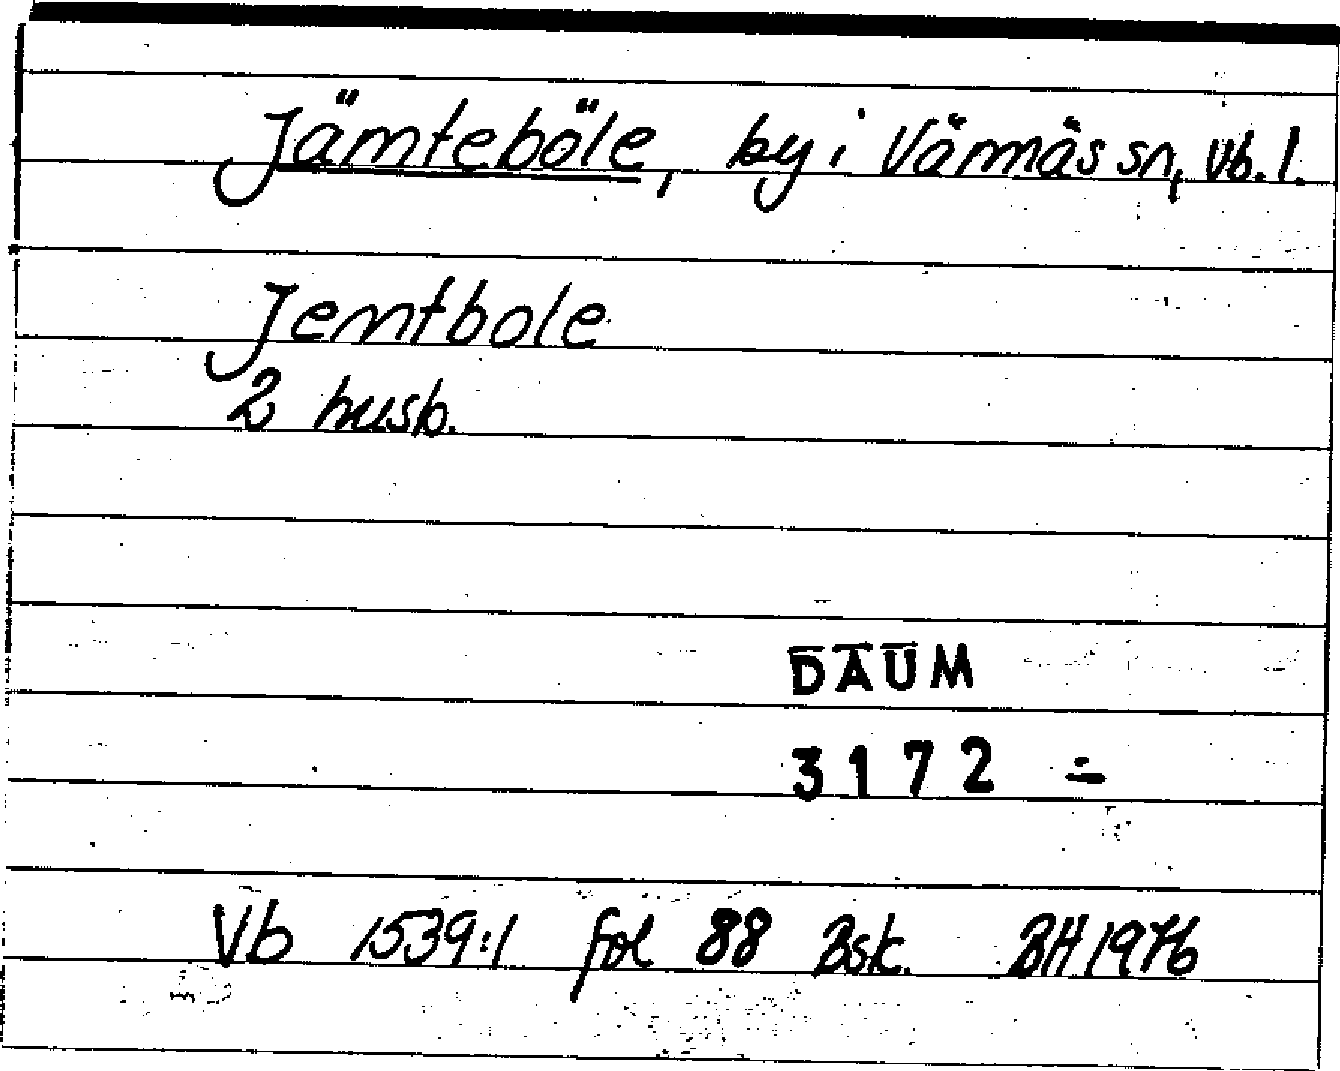 Jämteböle, by i Vännäs sn, Vb. l.
Jemtbole
2 husb.
DAUM
3172 -
Vb 1539:1 fol 88 Bsk. BH 1976